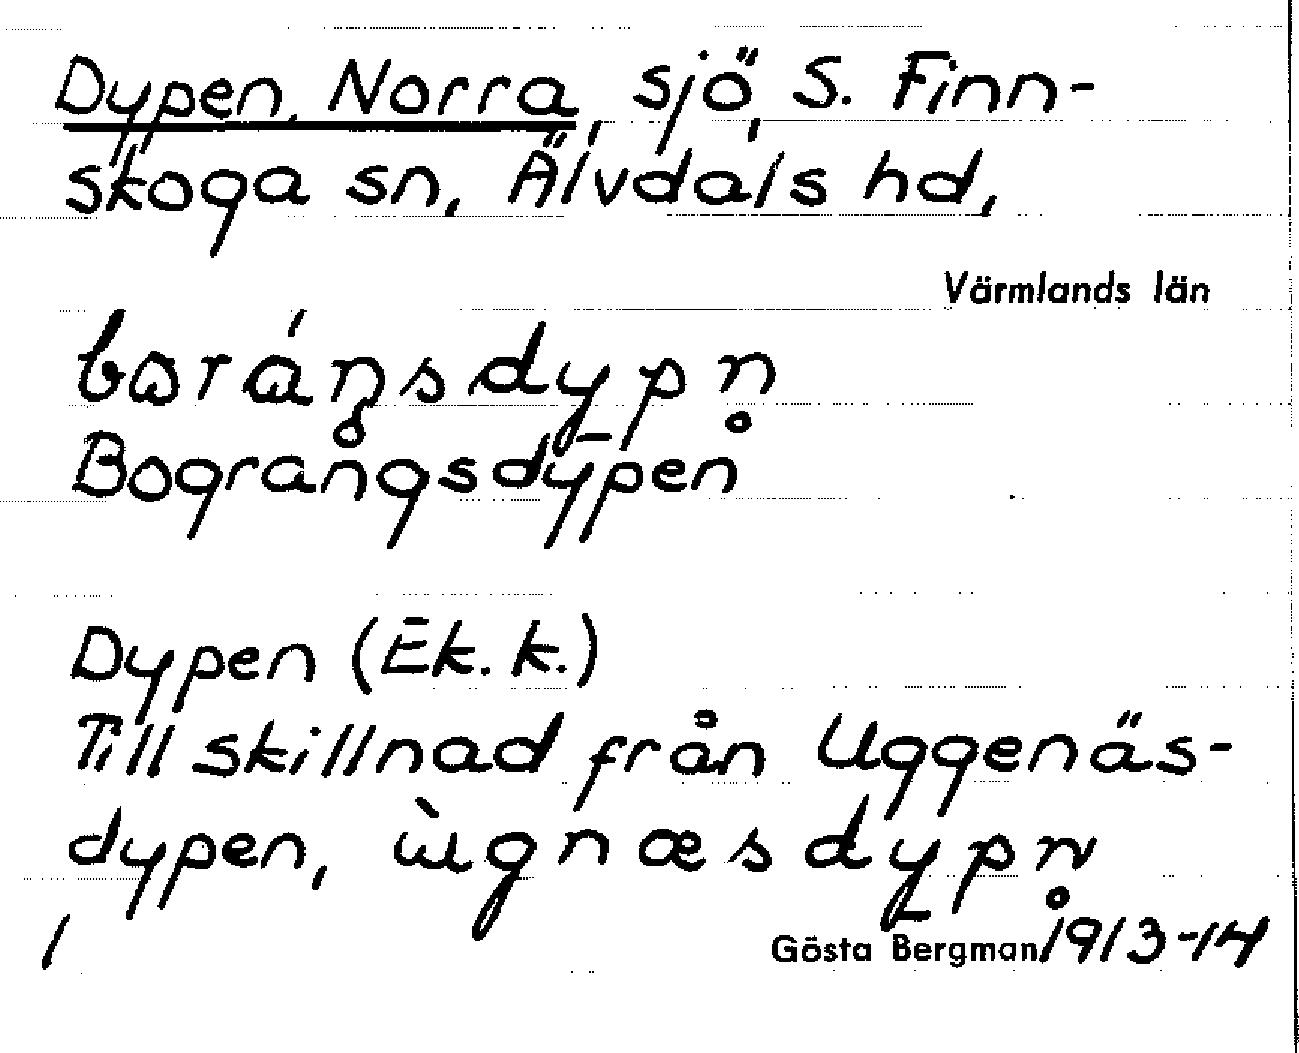 Dypen, Norra, sjö, S. Finn-
skoga sn, Älvdals hd,
Värmlands län
Bograngsdypen
Dypen (Ek. k.)
Till skillnad från Uggenäs-
dypen,
Gösta Bergman 1913-14